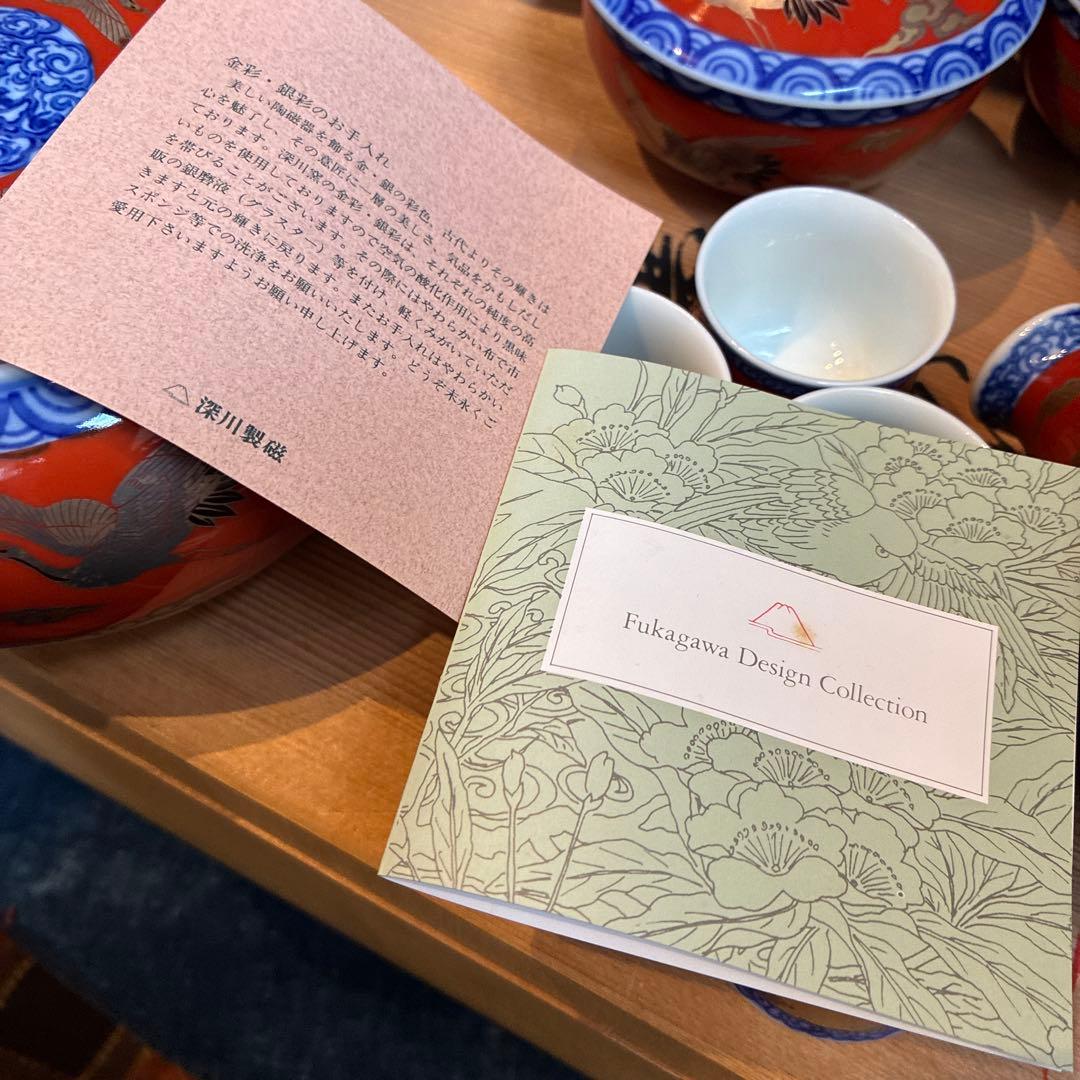 金彩・銀彩のお手入れ
美しい陶磁器を飾る金、銀の彩色。古代よりその輝きは
心を魅了し、その意匠に一層の美しさ、気品をかもしだし
ております。深川窯の金彩・銀彩は、それぞれの純度の高
いものを使用しておりますので空気の酸化作用により黒味
を帯びることがございます。その際にはやわらかい布で市
販の銀磨液（グラスター）等を付け、軽くみがいていただ
きますと元の輝きに戻ります。またお手入れはやわらかい
スポンジ等での洗浄をお願いいたします。どうぞ末永くご
愛用下さいますようお願い申し上げます。
深川製磁
Fukagawa Design Collection